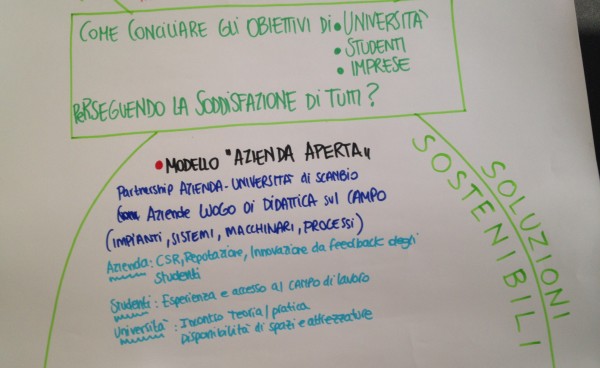 COME CONCILIARE GLI OBIETTIVI DI • UNIVERSITÀ
• STUDENTI
• IMPRESE
PERSEGUENDO LA SODDISFAZIONE DI TUTTI?
• MODELLO "AZIENDA APERTA"
Partnership AZIENDA-UNIVERSITÀ di SCAMBIO
AZIENDE LUOGO DI DIDATTICA sul CAMPO
(IMPIANTI, SISTEMI, MACCHINARI, PROCESSI)
Azienda: CSR, Reputazione, Innovazione da feedback degli
studenti
Studenti: Esperienza e accesso al CAMPO di lavoro
Università: Incontro Teoria/pratica
Disponibilità di spazi e attrezzature
SOLUZIONI
SOSTENIBILI